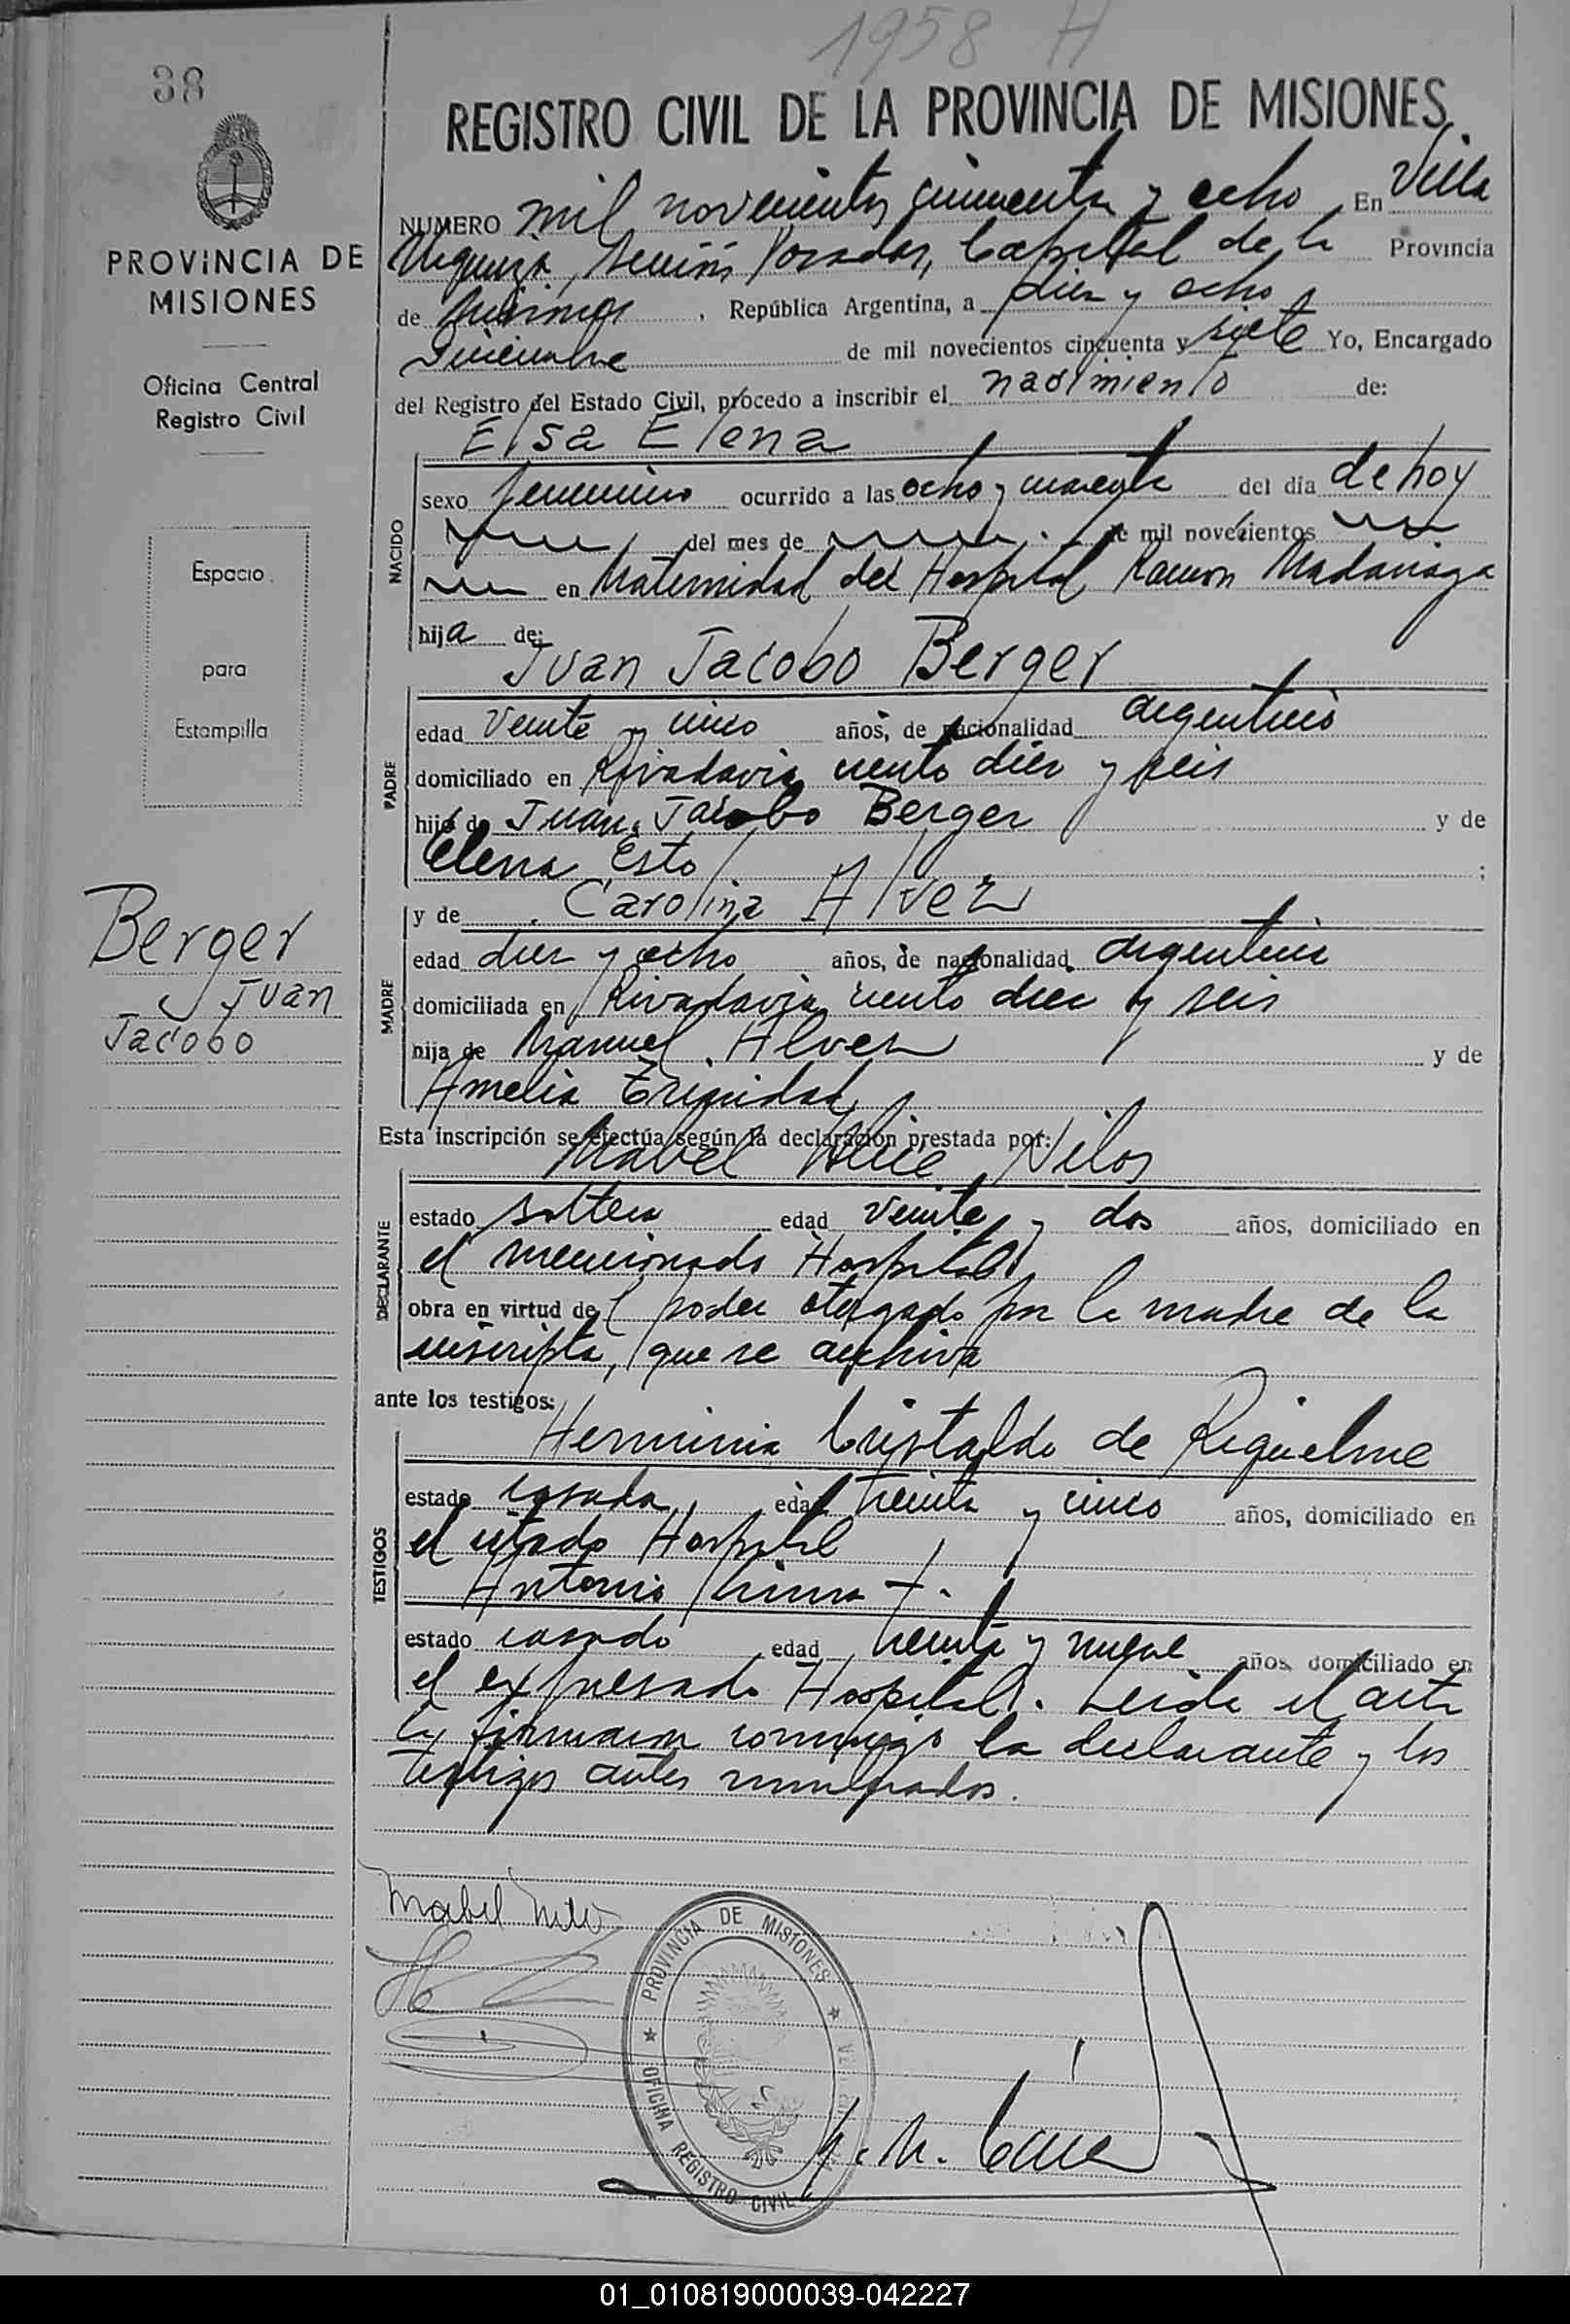 1958 H
38
REGISTRO CIVIL DE LA PROVINCIA DE MISIONES.
PROVINCIA DE
MISIONES
Oficina Central
Registro Civil
Espacio
para
Estampilla
Berger
Juan
Jacobo
NUMERO mil novecientos cincuenta y ocho En Villa
Urquiza, Sección Posadas, Capital de la Provincia
de Misiones, República Argentina, a diez y ocho
Diciembre de mil novecientos cincuenta y siete Yo, Encargado
del Registro del Estado Civil, procedo a inscribir el nacimiento de:
Elsa Elena
NACIDO
sexo femenino ocurrido a las ocho y cuarenta del día de hoy
del mes de de mil novecientos
en Maternidad del Hospital Ramon Madariaga
hija de:
Juan Jacobo Berger
PADRE
edad veinte y cinco años, de nacionalidad argentino
domiciliado en Rivadavia ciento diez y seis
hijo de Juan Jacobo Berger y de
Elena Esto ;
MADRE
y de Carolina Alvez
edad diez y ocho años, de nacionalidad argentina
domiciliada en Rivadavia ciento diez y seis
hija de Manuel Alvez y de
Amelia Trinidad
Esta inscripción se efectúa según la declaración prestada por:
Mabel Alice
DECLARANTE
estado soltera edad veinte y dos años, domiciliado en
el mencionado Hospital
obra en virtud del poder otorgado por la madre de la
inscripta, que se archiva
ante los testigos:
Herminia Cristaldo de Riquelme
TESTIGOS
estado casada edad treinta y cinco años, domiciliado en
el citado Hospital
Antonio
estado casado edad treinta y nueve años, domiciliado en
el expresado Hospital. Leida el acta
la firmaron conmigo la declarante y los
testigos antes nombrados.
Mabel
PROVINCIA DE MISIONES
OFICINA REGISTRO CIVIL
01_010819000039-042227